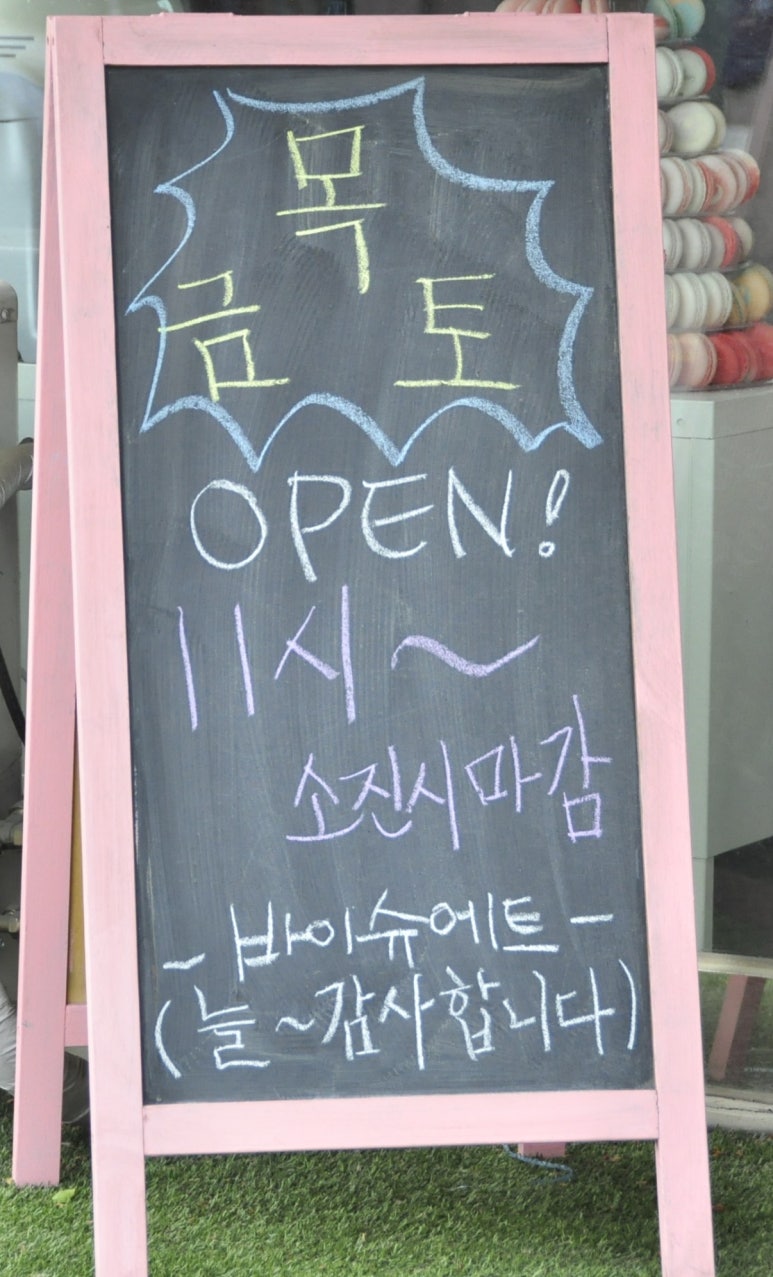 목
금 토
OPEN!
11시~
소진시마감
- 바이슈에트 -
(늘~감사합니다)